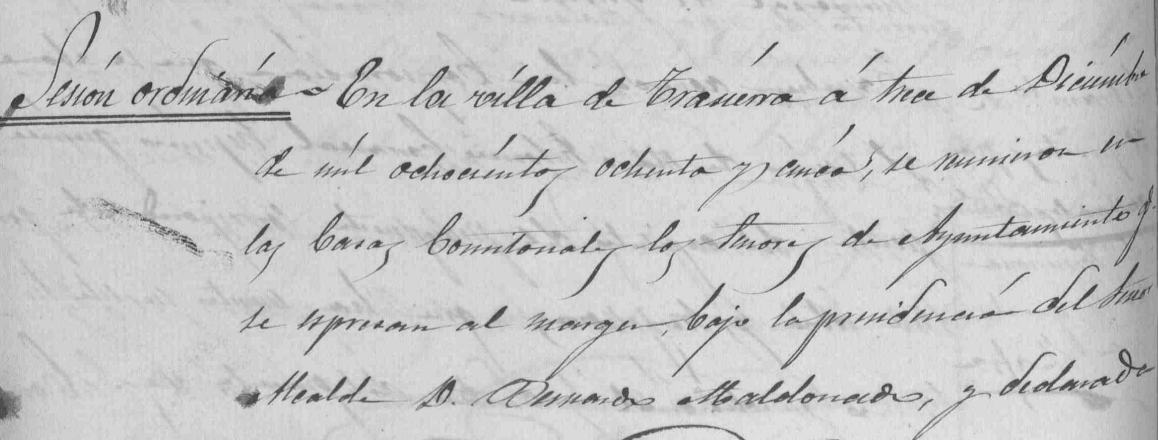 Sesión ordinária = En la villa de Trasierra á trece de Diciembre
de mil ochociéntos ochenta y cinco, se reunieron en
las Casas Consistoriales los Señores de Ayuntamiento q.
se espresan al margen, bajo la presidencia del Señor
Alcalde D. Maldonado, y declarada